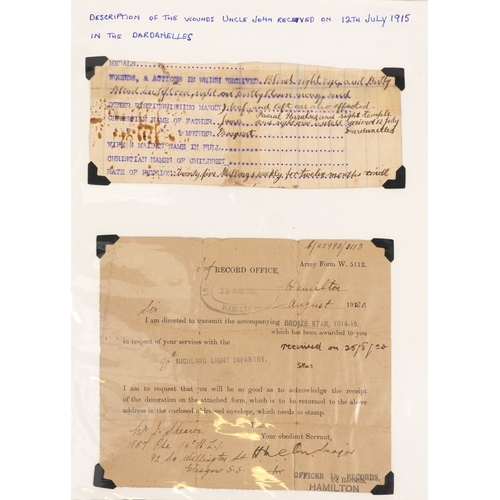 DESCRIPTION OF THE WOUNDS UNCLE JOHN RECEIVED ON 12TH JULY 1915
IN THE DARDANELLES
MEDALS.
WOUNDS, & ACTIONS IN WHICH RECEIVED. Blind right eye and Partly
Blind left eye, right arm Partly blown away and
OTHER DISTINGUISHING MARKS. deaf and left ear also affected.
Facial Paralysis and right temple
CHRISTIAN NAME OF FATHER. received 12 July
" " MOTHER. Margaret Dardanelles
WIFE'S MAIDEN NAME IN FULL.
CHRISTIAN NAMES OF CHILDREN.
RATE OF PENSION: Twenty five shillings weekly for twelve months
6/22990/2118
RECORD OFFICE, Army Form W. 5112.
Hamilton
HAMILTON
August 1920
Sir
I am directed to transmit the accompanying BRONZE STAR, 1914-15
which has been awarded to you
in respect of your services with the received on 25/8/20
HIGHLAND LIGHT INFANTRY.
Star
I am to request that you will be so good as to acknowledge the receipt
of the decoration on the attached form, which is to be returned to the above
address in the enclosed addressed envelope, which needs no stamp.
Mr J. Shearer Your obedient Servant,
Pte H.L.I.
92 So Wellington St Major
Glasgow S.S. for OFFICER i/c RECORDS,
i/c Records,
HAMILTON